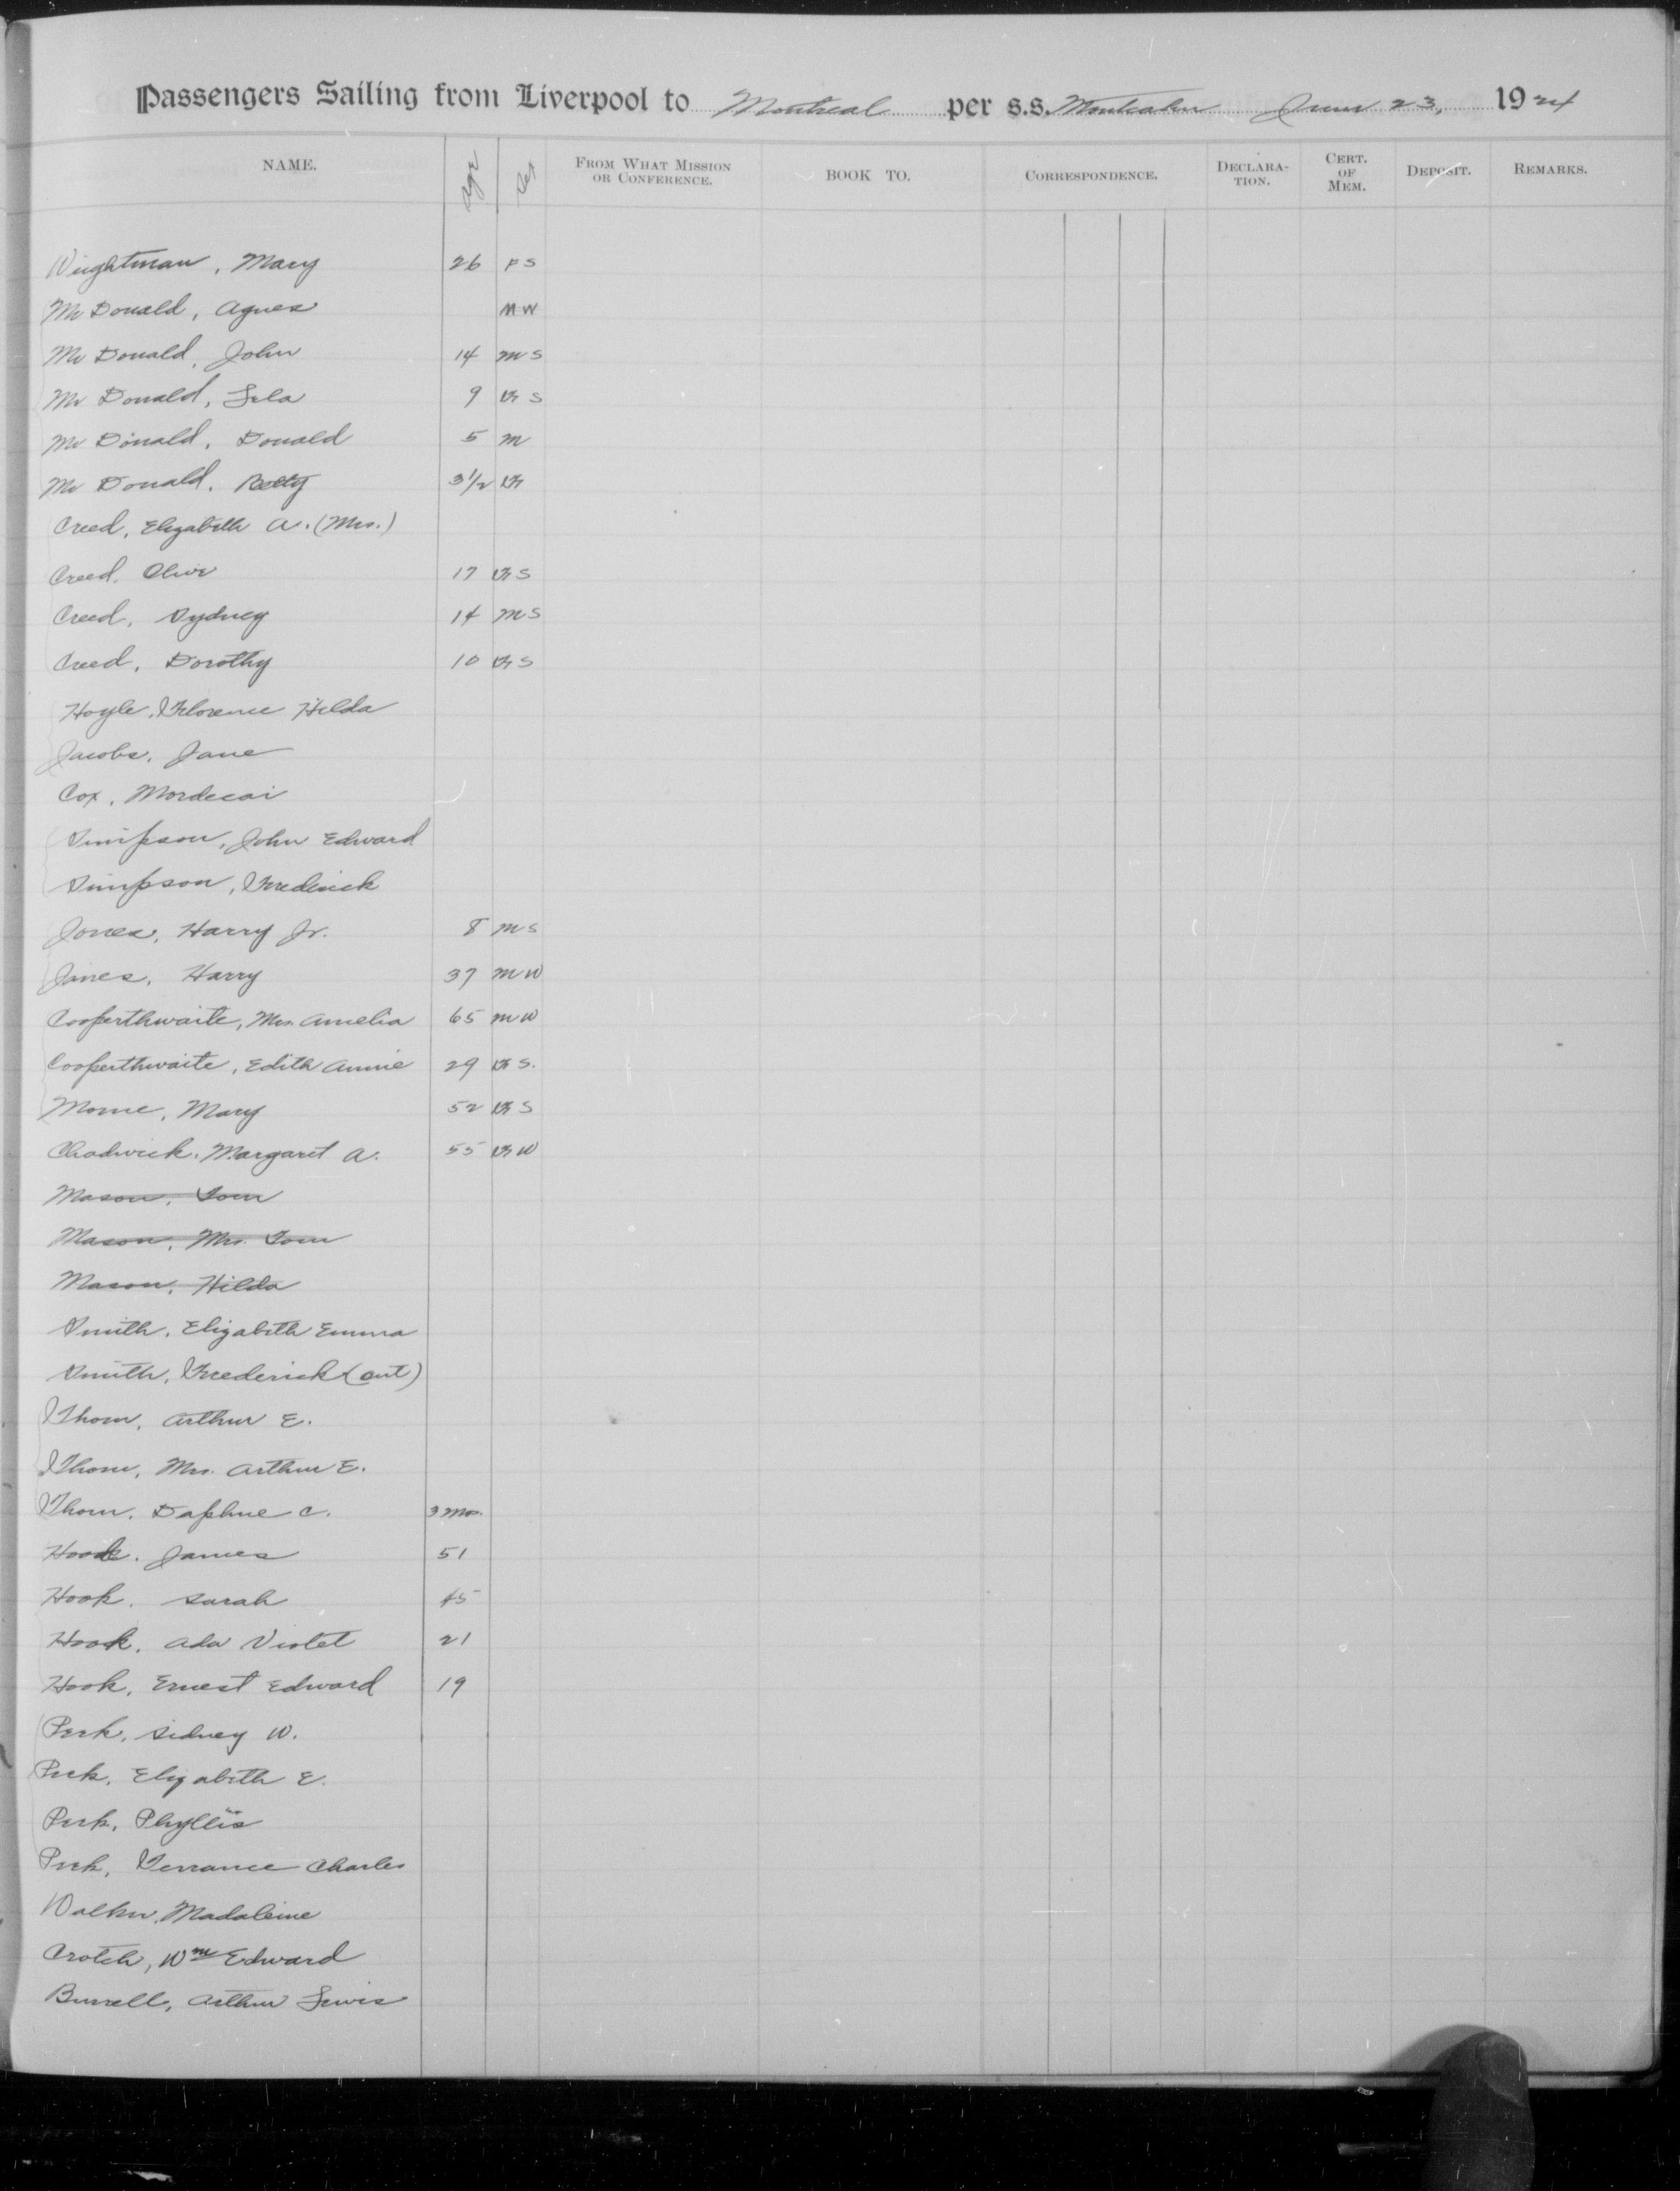 Passengers Sailing from Liverpool to Montreal per s.s. Montcalm June 23, 1924
NAME. Age Sex FROM WHAT MISSION OR CONFERENCE. BOOK TO. CORRESPONDENCE. DECLARATION. CERT. OF MEM. DEPOSIT. REMARKS.
Wightman, Mary 26 F S
McDonald, Agnes M W
McDonald, John 14 M S
McDonald, Lela 9 F S
McDonald, Donald 5 M
McDonald, Betty 3 1/2 F
Creed, Elizabeth A. (Mrs.)
Creed, Olive 17 F S
Creed, Sydney 14 M S
Creed, Dorothy 10 F S
Hoyle, Florence Hilda
Jacobs, Jane
Cox, Mordecai
Simpson, John Edward
Simpson, Frederick
Jones, Harry Jr. 8 M S
Jones, Harry 37 M W
Cooperthwaite, Mrs. Amelia 65 M W
Cooperthwaite, Edith Annie 29 F S.
Morne, Mary 52 F S
Chadwick, Margaret A. 55 F W
Mason, Tom
Mason, Mrs. Tom
Mason, Hilda
Smith, Elizabeth Emma
Smith, Frederick (out)
Thorn, Arthur E.
Thorn, Mrs. Arthur E.
Thorn, Daphne C. 3 Mos.
Hook, James 51
Hook, Sarah 45
Hook, Ada Violet 21
Hook, Ernest Edward 19
Peck, Sidney W.
Peck, Elizabeth E.
Peck, Phyllis
Peck, Terrance Charles
Walker, Madaleine
Crotch, Wm Edward
Burrell, Arthur Lewis